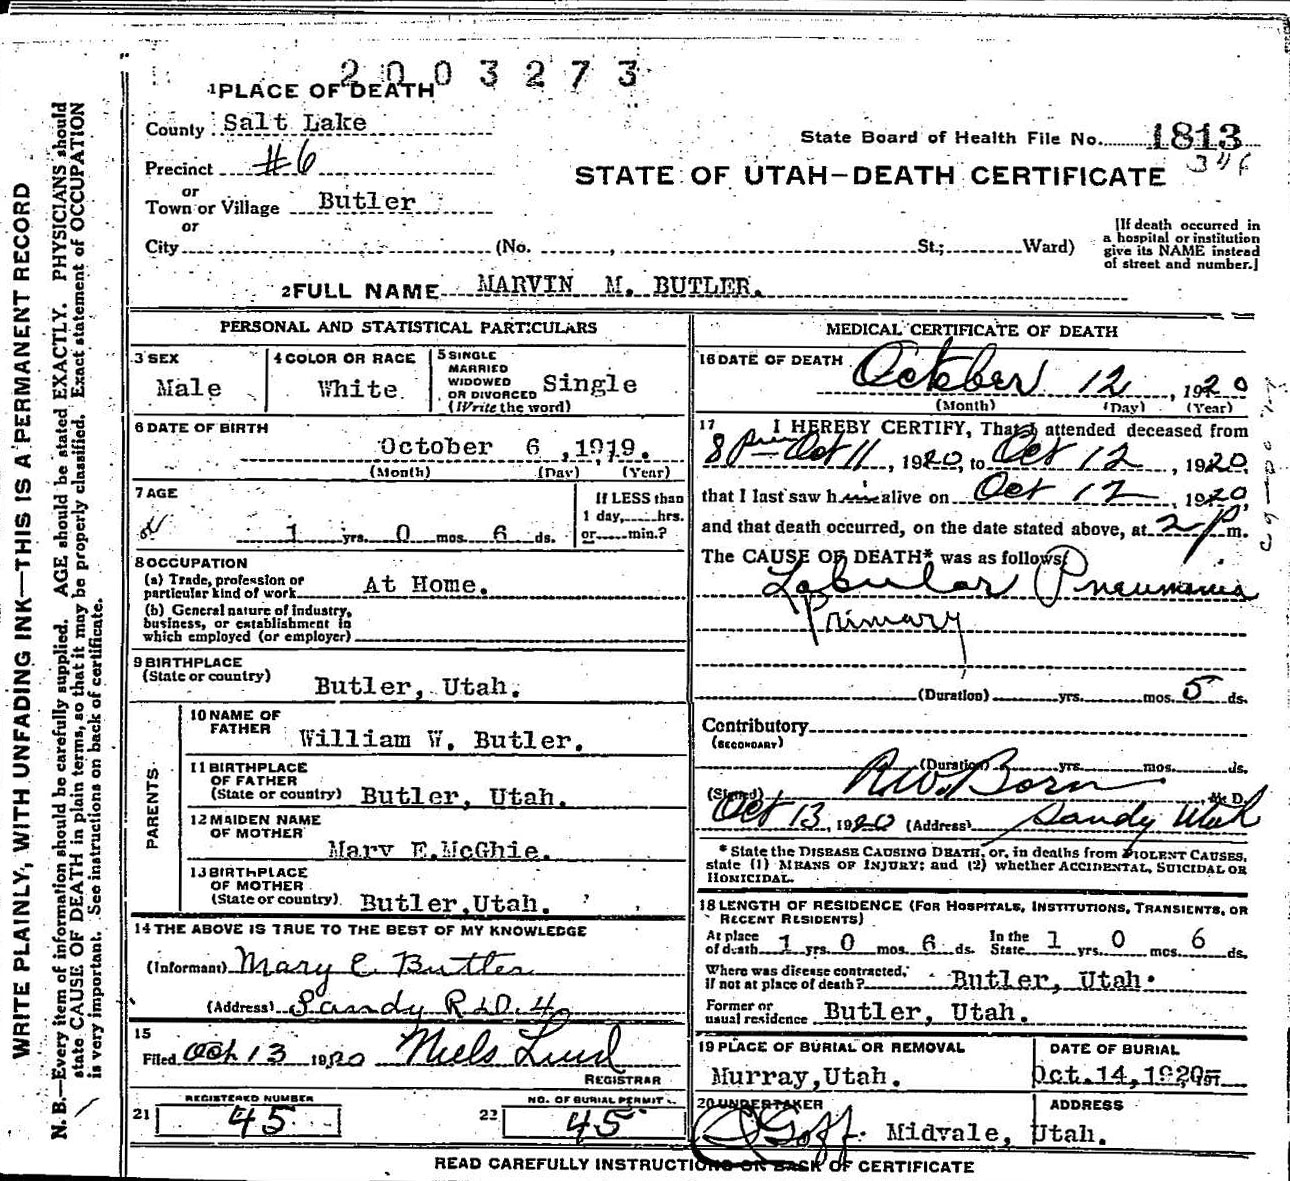 2003273
1 PLACE OF DEATH
County Salt Lake
State Board of Health File No. 1813
346
Precinct #6
STATE OF UTAH—DEATH CERTIFICATE
or
Town or Village Butler
or
City (No. , St.; Ward)
[If death occurred in
a hospital or institution
give its NAME instead
of street and number.]
2 FULL NAME MARVIN M. BUTLER.
PERSONAL AND STATISTICAL PARTICULARS
3 SEX
Male
4 COLOR OR RACE
White
5 SINGLE
MARRIED
WIDOWED
OR DIVORCED
(Write the word)
Single
6 DATE OF BIRTH
October 6, 1919.
(Month) (Day) (Year)
7 AGE
1 yrs. 0 mos. 6 ds.
If LESS than
1 day, hrs.
or min.?
8 OCCUPATION
(a) Trade, profession or
particular kind of work At Home.
(b) General nature of industry,
business, or establishment in
which employed (or employer)
9 BIRTHPLACE
(State or country)
Butler, Utah.
PARENTS
10 NAME OF
FATHER
William W. Butler.
11 BIRTHPLACE
OF FATHER
(State or country) Butler, Utah.
12 MAIDEN NAME
OF MOTHER
Mary E. McGhie.
13 BIRTHPLACE
OF MOTHER
(State or country) Butler, Utah.
14 THE ABOVE IS TRUE TO THE BEST OF MY KNOWLEDGE
(Informant) Mary E Butler
(Address) Sandy R.D. 4
15
Filed Oct 13 1920 Niels Lind
REGISTRAR
REGISTERED NUMBER
21 45
NO. OF BURIAL PERMIT
22 45
MEDICAL CERTIFICATE OF DEATH
16 DATE OF DEATH
October 12, 1920
(Month) (Day) (Year)
17 I HEREBY CERTIFY, That I attended deceased from
8 pm Oct 11, 1920, to Oct 12, 1920,
that I last saw him alive on Oct 12, 1920,
and that death occurred, on the date stated above, at 2 p m.
The CAUSE OF DEATH* was as follows:
Lobular Pneumonia
Primary
(Duration) yrs. mos. 5 ds.
Contributory
(SECONDARY)
(Duration) yrs. mos. ds.
(Signed) R.W. Born, M. D.
Oct 13, 1920 (Address) Sandy Utah
* State the DISEASE CAUSING DEATH, or, in deaths from VIOLENT CAUSES,
state (1) MEANS OF INJURY; and (2) whether ACCIDENTAL, SUICIDAL OR
HOMICIDAL.
18 LENGTH OF RESIDENCE (FOR HOSPITALS, INSTITUTIONS, TRANSIENTS, OR
RECENT RESIDENTS)
At place
of death 1 yrs. 0 mos. 6 ds. In the
State 1 yrs. 0 mos. 6 ds.
Where was disease contracted,
if not at place of death? Butler, Utah.
Former or
usual residence Butler, Utah.
19 PLACE OF BURIAL OR REMOVAL
Murray, Utah.
DATE OF BURIAL
Oct. 14, 1920
20 UNDERTAKER
Goff. Midvale, Utah.
ADDRESS
READ CAREFULLY INSTRUCTIONS ON BACK OF CERTIFICATE
WRITE PLAINLY, WITH UNFADING INK—THIS IS A PERMANENT RECORD
N. B.—Every item of information should be carefully supplied. AGE should be stated EXACTLY. PHYSICIANS should
state CAUSE OF DEATH in plain terms, so that it may be properly classified. Exact statement of OCCUPATION
is very important. See instructions on back of certificate.